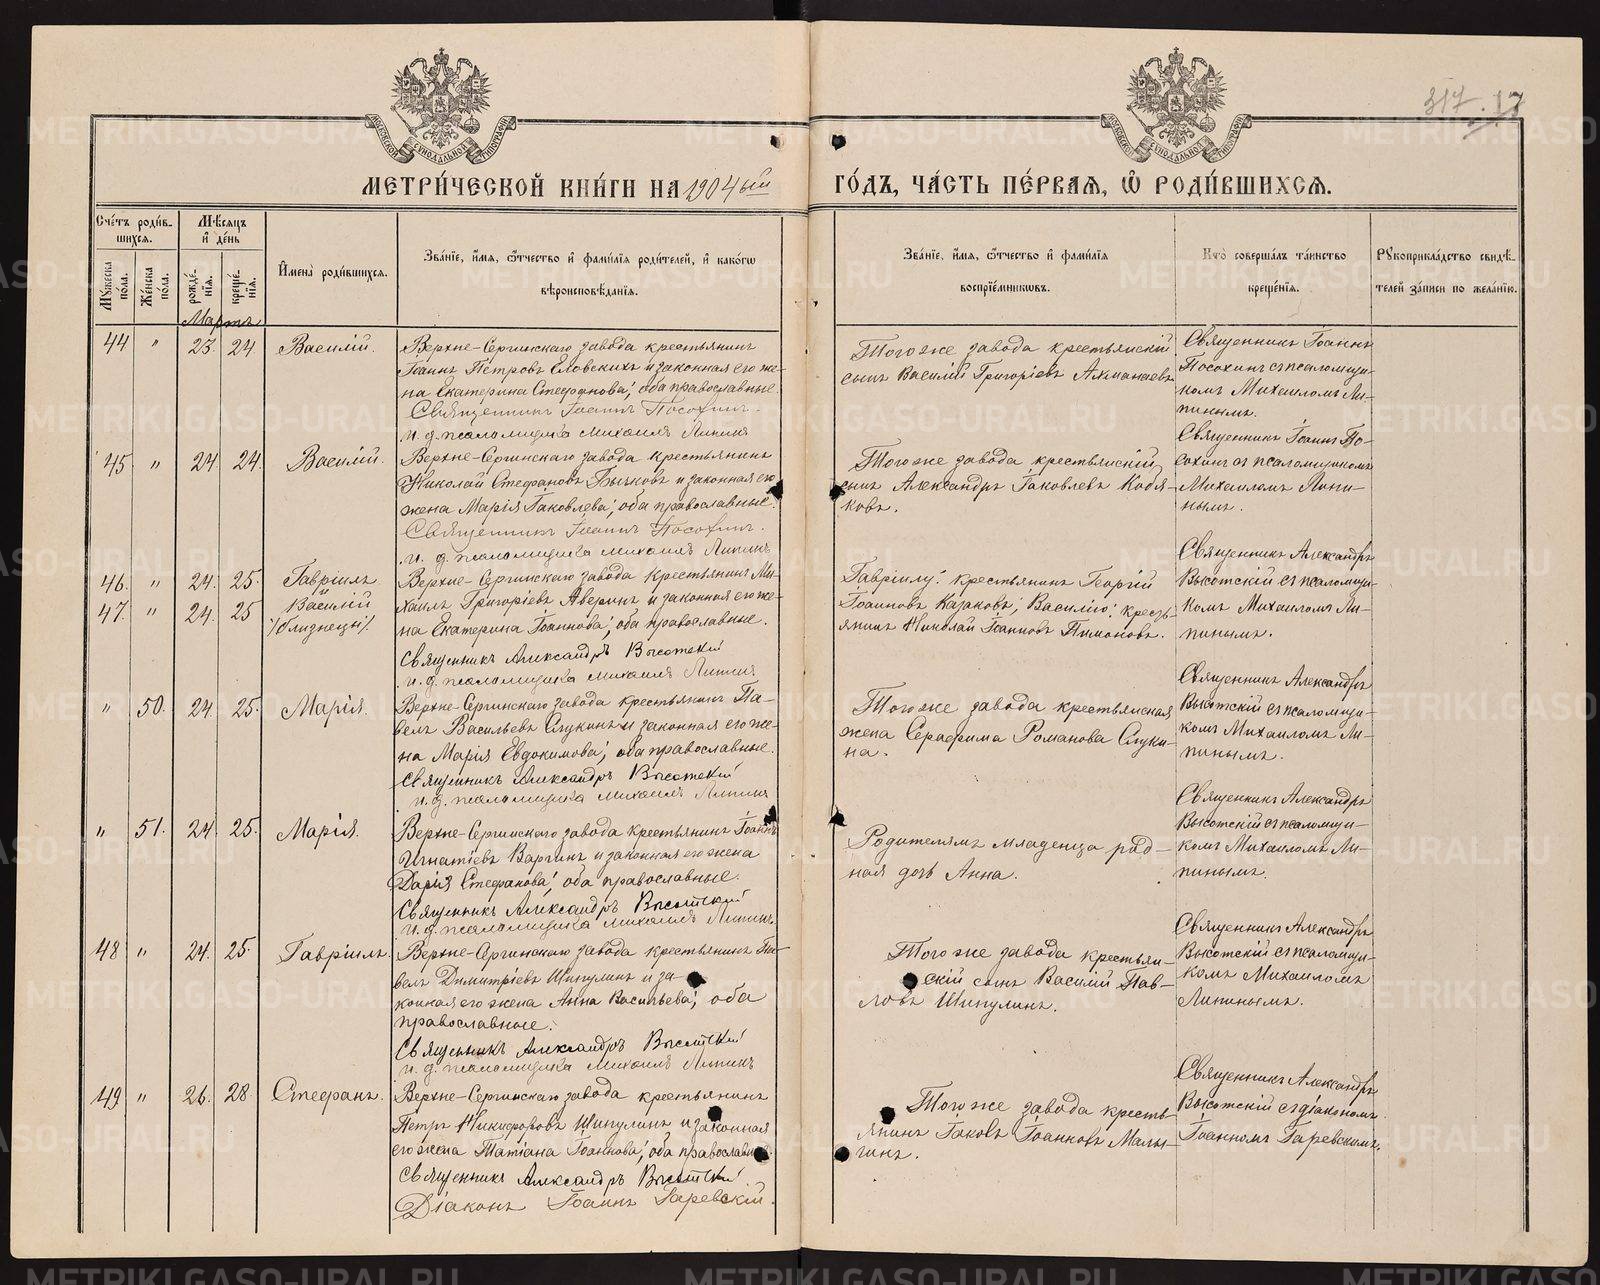 317. 17
МОСКОВСКОЙ СУНОДАЛЬНОЙ ТИПОГРАФІИ
МОСКОВСКОЙ СУНОДАЛЬНОЙ ТИПОГРАФІИ
МЕТРИ́ЧЕСКОЙ КНИ́ГИ НА 1904ый ГО́ДЪ, ЧА́СТЬ ПЕ́РВАѦ, Ѡ РОДИ́ВШИХСѦ.
Сче́тъ роди́вшихсѧ.
Му́жеска по́ла.
Же́нска по́ла.
Мѣ́сѧцъ и҆ де́нь
рожде́нїѧ.
креще́нїѧ.
И҆мена̀ роди́вшихсѧ.
Зва́нїе, и҆́мѧ, ѻ҆́тчество и҆ фами́лїѧ роди́телей, и҆ како́гѡ
вѣроисповѣ́данїѧ.
Зва́нїе, и҆́мѧ, ѻ҆́тчество и҆ фами́лїѧ
воспрїе́мникѡвъ.
Кто̀ соверша́лъ та́инство
креще́нїѧ.
Рукоприкла́дство свидѣ́-
телей за́писи по жела́нїю.
Мартъ
44 " 23. 24 Василій.
Верхне-Сергинскаго завода крестьянинъ
Іоаннъ Петровъ Еловскихъ и законная его же-
на Екатерина Стефанова; оба православные.
Священникъ Іоаннъ Посохинъ.
и. д. псаломщика Михаилъ Липинъ
Того же завода крестьянскій
сынъ Василій Григоріевъ Ахманаевъ
Священникъ Іоаннъ
Посохинъ съ псаломщи-
комъ Михаиломъ Ли-
пинымъ.
45. " 24 24. Василій.
Верхне-Сергинскаго завода крестьянинъ
Николай Стефановъ Бычковъ и законная его
жена Марія Іаковлева; оба православные.
Священникъ Іоаннъ Посохинъ.
и. д. псаломщика Михаилъ Липинъ
Того же завода крестьянскій
сынъ Александръ Іаковлевъ Кобя-
ковъ.
Священникъ Іоаннъ По-
сохинъ съ псаломщикомъ
Михаиломъ Липи-
нымъ.
46. " 24. 25. Гавріилъ
и
47. " 24. 25 Василій
/близнецы/.
Верхне-Сергинскаго завода крестьянинъ Ми-
хаилъ Григоріевъ Аверинъ и законная его же-
на Екатерина Іоаннова; оба православные.
Священникъ Александръ Высотскій
и. д. псаломщика Михаилъ Липинъ
Гавріилу: крестьянинъ Георгій
Іоанновъ Казаковъ; Василію: кресть-
янинъ Николай Іоанновъ Пимоновъ.
Священникъ Александръ
Высотскій съ псаломщи-
комъ Михаиломъ Ли-
пинымъ.
" 50. 24. 25. Марія.
Верхне-Сергинскаго завода крестьянинъ Па-
велъ Васильевъ Слукинъ и законная его же-
на Марія Евдокимова; оба православные.
Священникъ Александръ Высотскій
и. д. псаломщика Михаилъ Липинъ
Того же завода крестьянская
жена Серафима Романова Слуки-
на.
Священникъ Александръ
Высотскій съ псаломщи-
комъ Михаиломъ Ли-
пинымъ.
" 51. 24. 25. Марія.
Верхне-Сергинскаго завода крестьянинъ Іоаннъ
Игнатіевъ Варгинъ и законная его жена
Дарія Стефанова; оба православные.
Священникъ Александръ Высотскій
и. д. псаломщика Михаилъ Липинъ.
Родителямъ младенца род-
ная дочь Анна.
Священникъ Александръ
Высотскій съ псаломщи-
комъ Михаиломъ Ли-
пинымъ.
48 " 24. 25. Гавріилъ.
Верхне-Сергинскаго завода крестьянинъ Па-
велъ Димитріевъ Шипулинъ и за-
конная его жена Анна Васильева; оба
православные.
Священникъ Александръ Высотскій
и. д. псаломщика Михаилъ Липинъ
Того же завода крестьян-
скій сынъ Василій Пав-
ловъ Шипулинъ.
Священникъ Александръ
Высотскій съ псаломщи-
комъ Михаиломъ
Липинымъ.
49 " 26. 28. Стефанъ.
Верхне-Сергинскаго завода крестьянинъ
Петръ Никифоровъ Шипулинъ и законная
его жена Татіана Іоаннова; оба православные.
Священникъ Александръ Высотскій
Діаконъ Іоаннъ Гаревскій.
Того же завода кресть-
янинъ Іаковъ Іоанновъ Малы-
гинъ.
Священникъ Александръ
Высотскій съ діакономъ
Іоанномъ Гаревскимъ.
METRIKI.GASO-URAL.RU